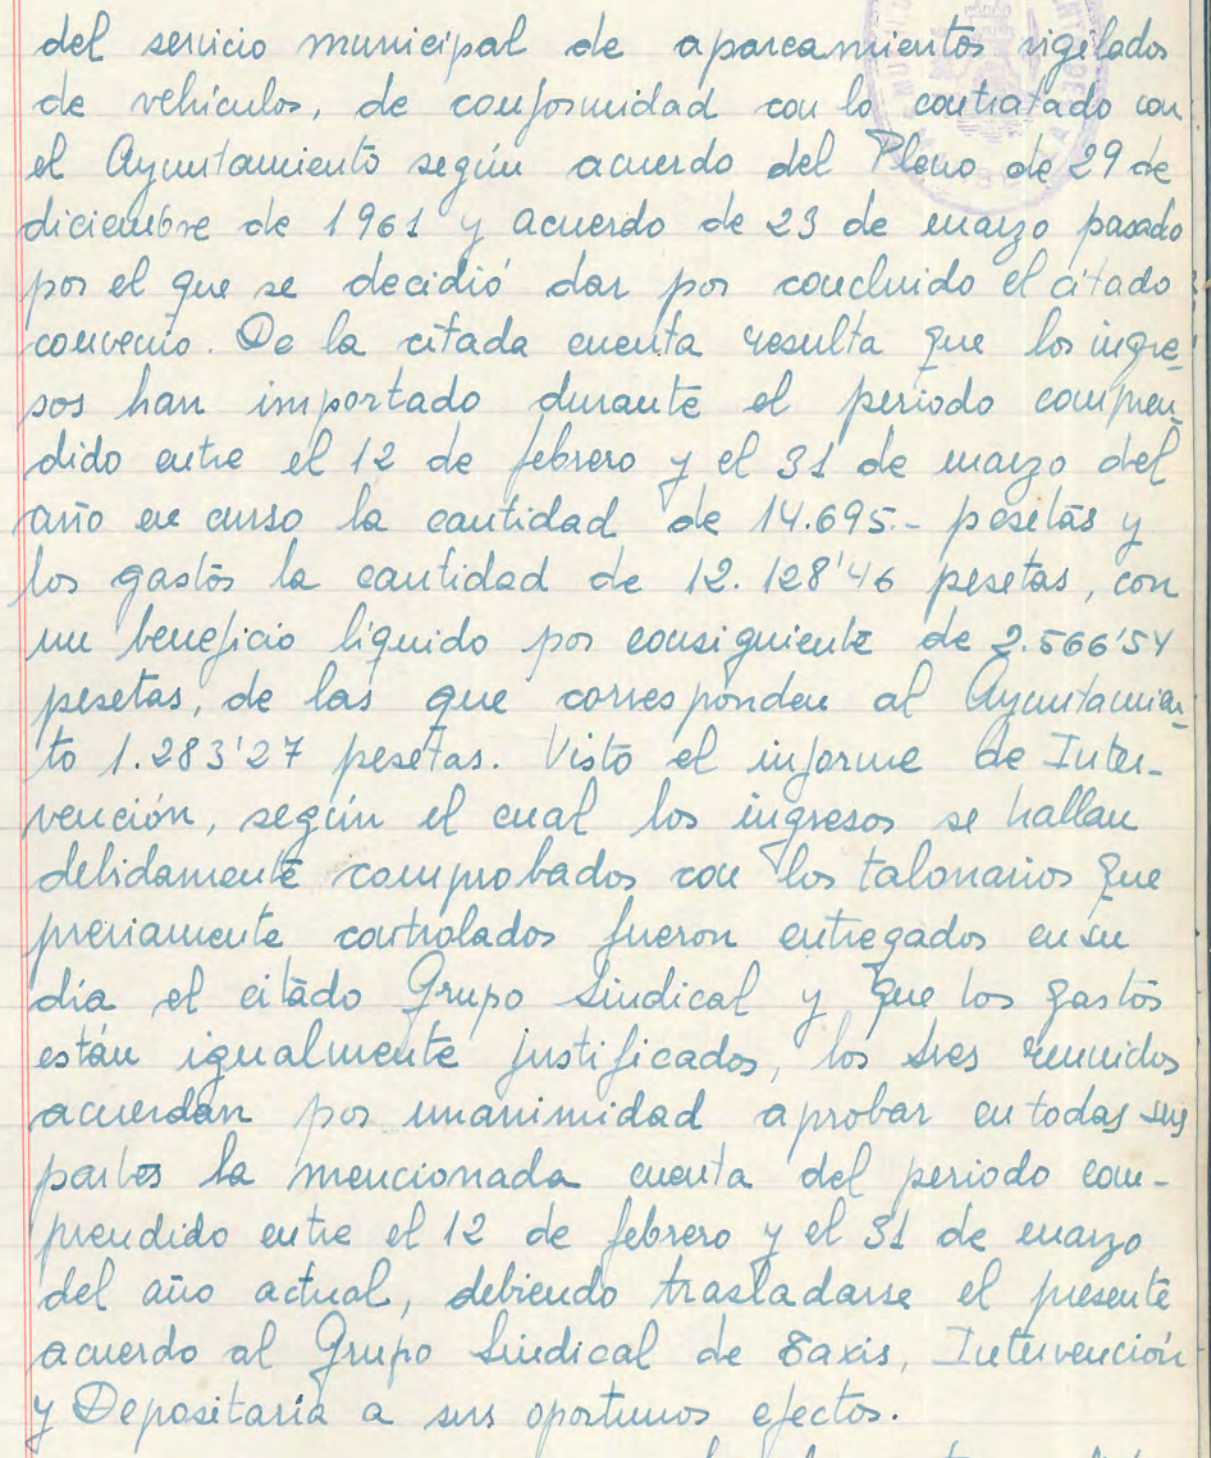 del servicio municipal de aparcamientos vigilados
de vehículos, de conformidad con lo contratado con
el Ayuntamiento según acuerdo del Pleno de 29 de
diciembre de 1961 y acuerdo de 23 de marzo pasado
por el que se decidió dar por concluido el citado
convenio. De la citada cuenta resulta que los ingre-
sos han importado durante el periodo compren-
dido entre el 12 de febrero y el 31 de marzo del
año en curso la cantidad de 14.695.- pesetas y
los gastos la cantidad de 12.128'46 pesetas, con
un beneficio líquido por consiguiente de 2.566'54
pesetas, de las que corresponden al Ayuntamien-
to 1.283'27 pesetas. Visto el informe de Inter-
vención, según el cual los ingresos se hallan
debidamente comprobados con los talonarios que
previamente controlados fueron entregados en su
día el citado Grupo Sindical y que los gastos
están igualmente justificados, los Sres reunidos
acuerdan por unanimidad aprobar en todas sus
partes la mencionada cuenta del periodo com-
prendido entre el 12 de febrero y el 31 de marzo
del año actual, debiendo trasladarse el presente
acuerdo al Grupo Sindical de Taxis, Intervención
y Depositaría a sus oportunos efectos.